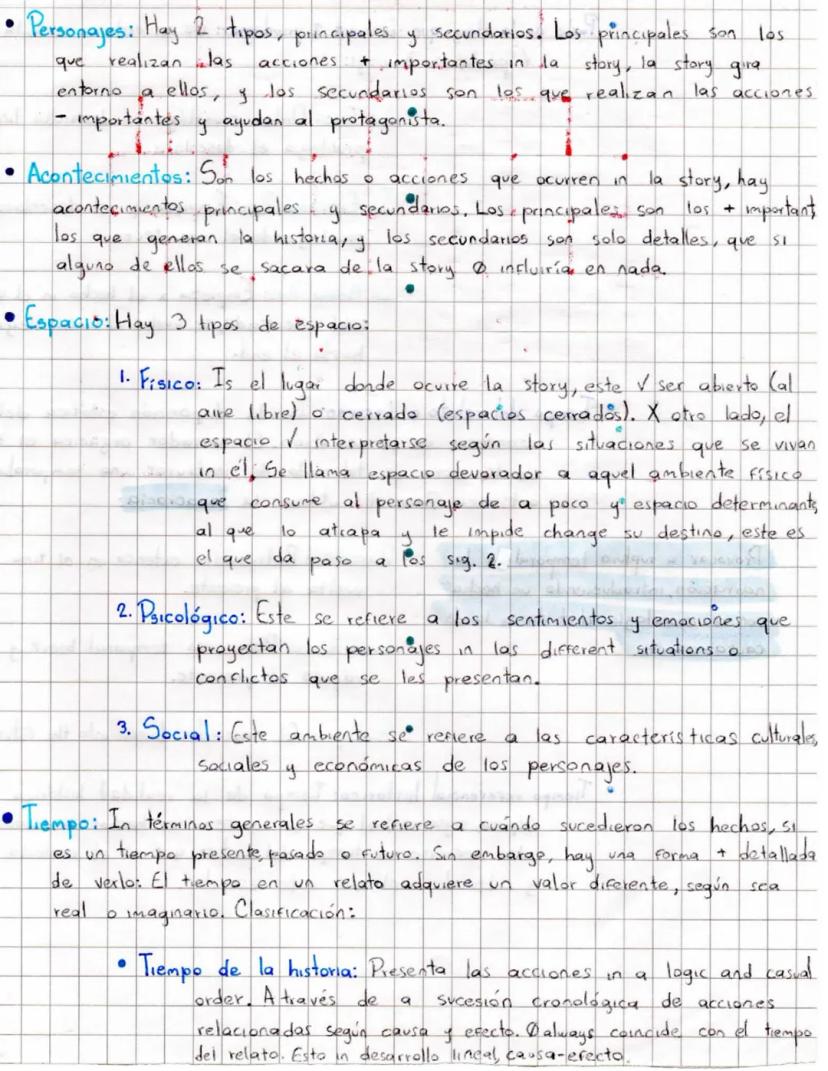 • Personajes: Hay 2 tipos, principales y secundarios. Los principales son los
que realizan las acciones + importantes in la story, la story gira
entorno a ellos, y los secundarios son los que realizan las acciones
- importantes y ayudan al protagonista.
• Acontecimientos: Son los hechos o acciones que ocurren in la story, hay
acontecimientos principales y secundarios. Los principales son los + important,
los que generan la historia, y los secundarios son solo detalles, que si
alguno de ellos se sacara de la story Ø influiría en nada.
• Espacio: Hay 3 tipos de espacio:
1. Físico: Is el lugar donde ocurre la story, este √ ser abierto (al
aire libre) o cerrado (espacios cerrados). X otro lado, el
espacio √ interpretarse según las situaciones que se vivan
in él. Se llama espacio devorador a aquel ambiente físico
que consume al personaje de a poco y espacio determinante
al que lo atrapa y le impide change su destino, este es
el que da paso a los sig. 2.
2. Psicológico: Este se refiere a los sentimientos y emociones que
proyectan los personajes in las different situations o
conflictos que se les presentan.
3. Social: Este ambiente se refiere a las características culturales,
sociales y económicas de los personajes.
• Tiempo: In términos generales se refiere a cuándo sucedieron los hechos, si
es un tiempo presente, pasado o futuro. Sin embargo, hay una forma + detallada
de verlo: El tiempo en un relato adquiere un valor diferente, según sea
real o imaginario. Clasificación:
• Tiempo de la historia: Presenta las acciones in a logic and casual
order. A través de a sucesión cronológica de acciones
relacionadas según causa y efecto. Ø always coincide con el tiempo
del relato. Esto in desarrollo lineal, causa-efecto.